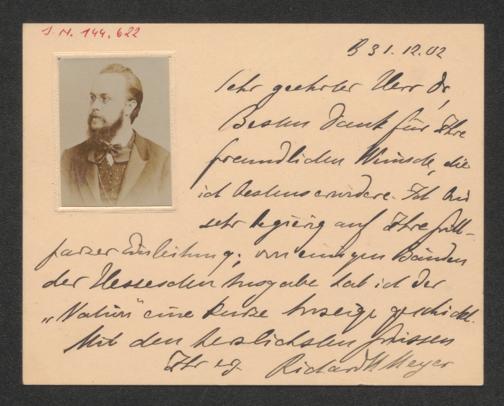 J. N. 144.622
B 31.12.02
Sehr geehrter Herr Dr,
Besten Dank für Ihre
freundlichen Wünsche, die
ich bestens erwidere. Ich bin
sehr begierig auf Ihre Grill-
parzer Einleitung; von einigen Bänden
der Hesseschen Ausgabe hab ich der
„Nation" eine kurze Anzeige geschickt.
Mit den herzlichsten Grüssen
Ihr erg.
Richard M Meyer